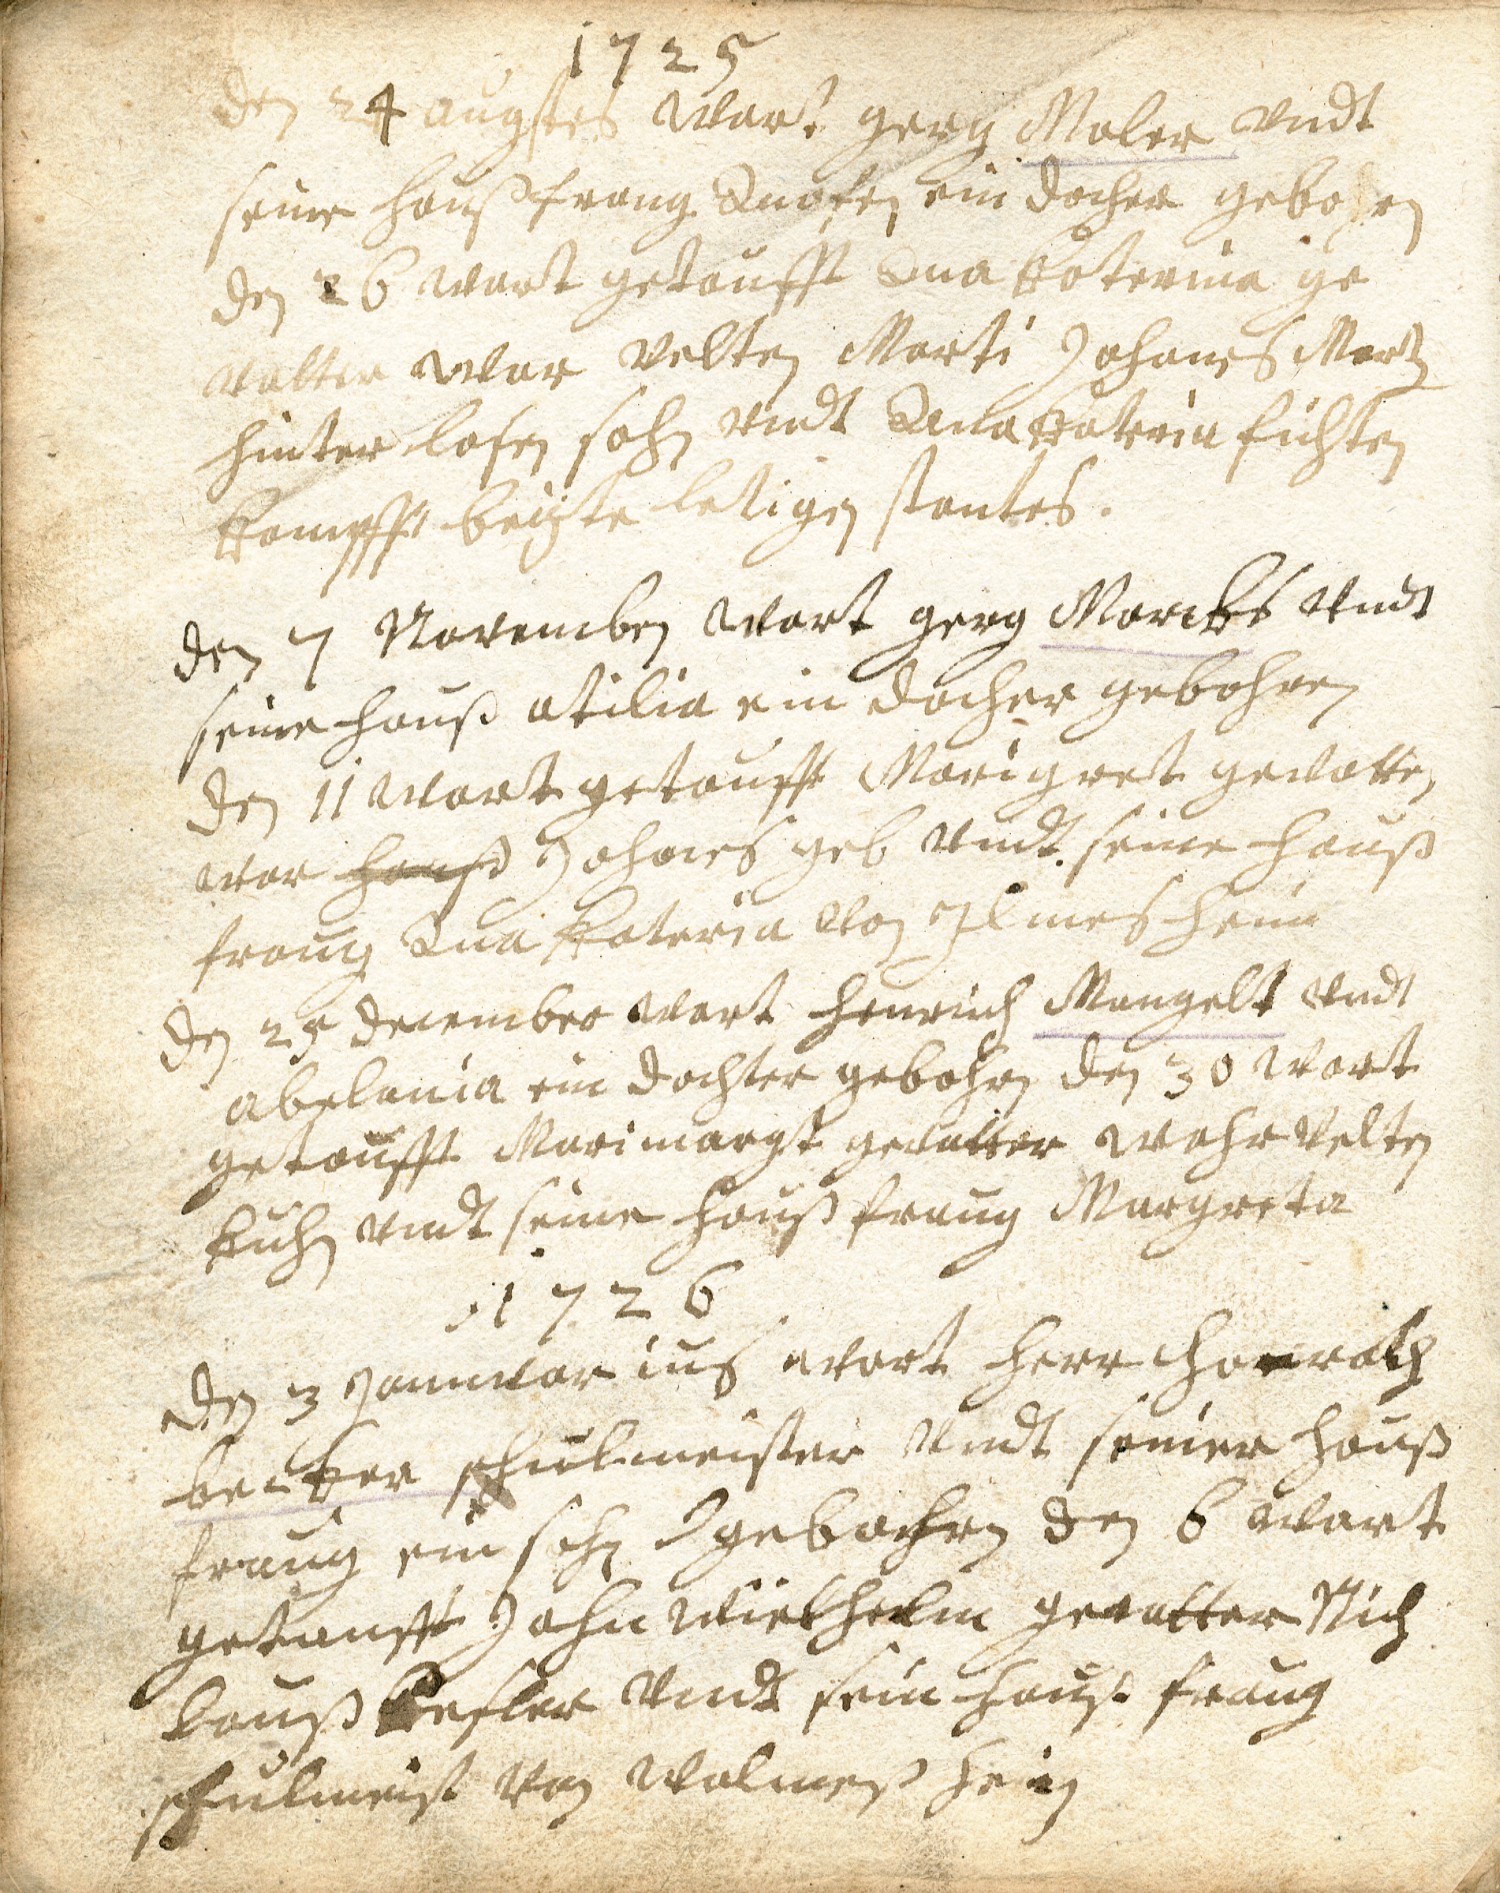 1725
den 24 augstes wart gerg Maler vndt
seine haußfraug Anafen ein docher gebohren
den 26 wart getaufft Ana Katerina ge
vatter war Velten Marti Johanes Martz
hinter lasen sohn vndt Ana Katrina
beyte letigen stantes.
den 7 November wart gerg Marckes vndt
seine hauß atilia ein docher gebohren
den 11 wart getaufft Marigret gevatter
war hauß Johanes geb vndt seine hauß
fraug Ana Kateria von Ilmesheim
den 25 december wart Henrich Mangelt vndt
abelania ein dochter gebohrn den 30 wart
getaufft Marimargt gevatter wahr Velten
Kuhn vndt seine haußfraug Margreta
1726
den 3 Januarius wart herr Honrath
becker schulmeister vndt seiner hauß
fraug ein sohn gebohrn den 6 wart
getaufft Johan Wielhelm gevatter Nich
lauß Kesler vndt sein hauß fraug
schulmeist von Walmeßheim